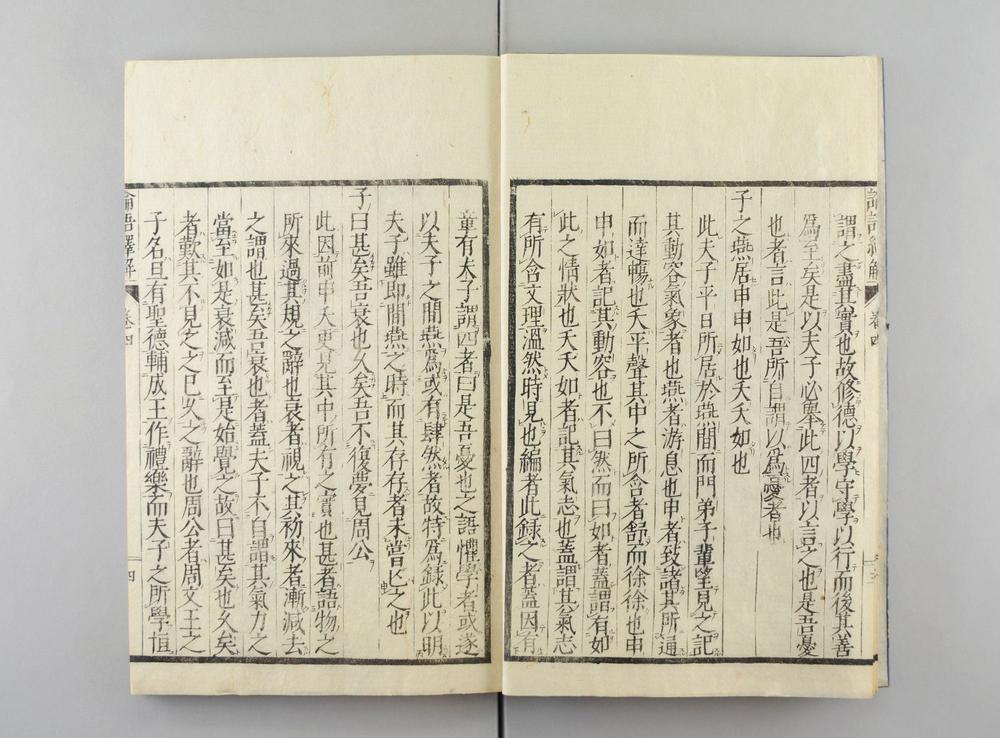 謂之盡其實也故修德以學守學以行而後其善
爲至矣是以夫子必舉此四者以言之也是吾憂
也者言此是吾所自謂以爲憂者也
子之燕居申申如也夭夭如也
此夫子平日所居於燕間而門弟子輩望見之記
其動容氣象者也燕者游息也申者致諸其所通
而達暢也夭平聲其中之所含者舒而徐徐也申
申如者記其動容也不曰然而曰如者蓋謂有如
此之情狀也夭夭如者記其氣志也蓋謂其氣志
有所含文理溫然時見也編者此錄之者蓋因有
童有夫子謂四者曰是吾憂也之語懼學者或遂
以夫子之間燕爲或有肆然者故特爲錄此以明
夫子雖即間燕之時而其存存者未嘗亡之也
子曰甚矣吾衰也久矣吾不復夢見周公
此因前申夭更見其中所有之實也甚者語物之
所來過其規之辭也衰者視之其初來者漸減去
之謂也甚矣吾衰也者蓋夫子不自謂其氣方之
當至如是衰減而至是始覺之故曰甚矣也久矣
者歎其不見之之已久之辭也周公者周文王之
子名旦有聖德輔成王作禮樂而夫子之所學恒
論語繹解 卷四 四